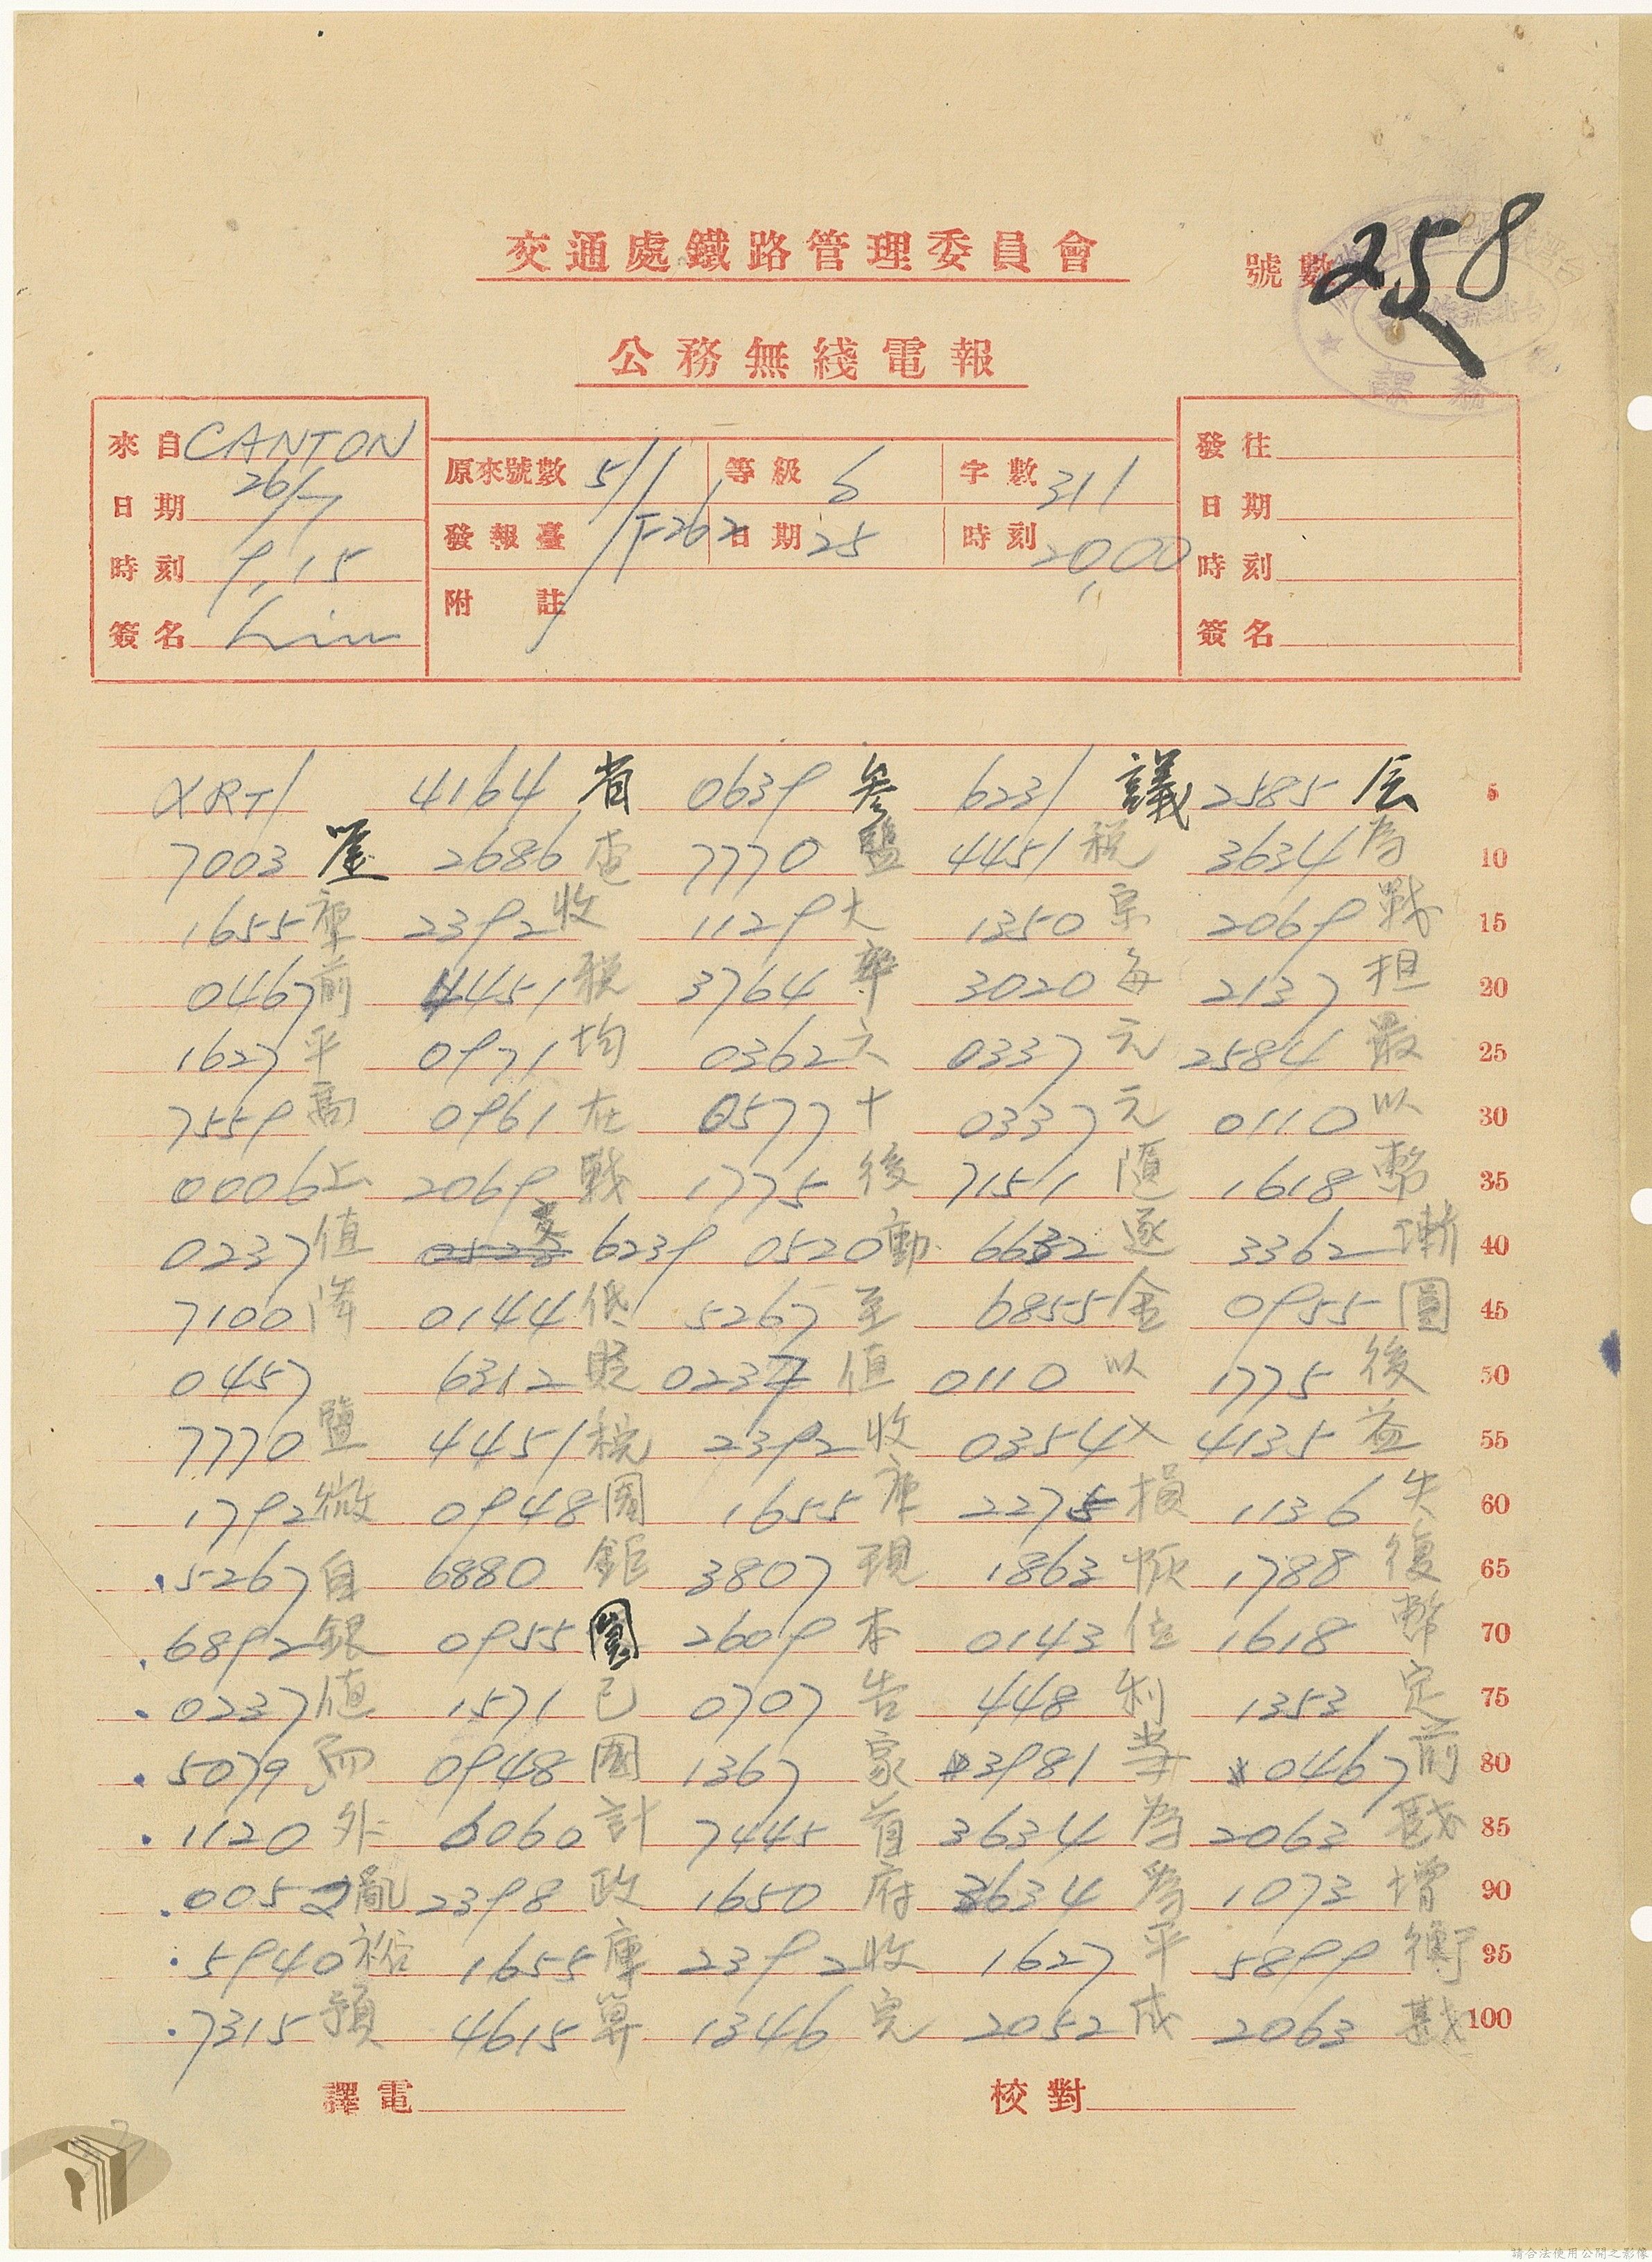 交通處鐵路管理委員會
號數 258
公務無綫電報
來自 CANTON
日期 26/7
時刻 9,15
簽名
原來號數 511 等級 6 字數 311
發報臺 日期 25 時刻 20,00
附註
發往
日期
時刻
簽名
XRT 4164 省 0639 參 6231 議 2585 会 5
7003 2686 電 7770 鹽 4451 税 3634 為 10
1655 庫 2392 收 1129 大 1350 宗 2069 戰 15
0467 前 4451 税 3764 率 3020 每 2137 担 20
1627 平 0971 均 0362 六 0337 元 2584 最 25
7559 高 0961 在 0577 十 0337 元 0110 以 30
0006 上 2069 戰 1775 後 7151 隨 1618 幣 35
0237 值 變 6239 0520 動 6632 逐 3362 漸 40
7100 降 0144 低 5267 至 6855 金 0955 圓 45
0457 6312 貶 0237 值 0110 以 1775 後 50
7770 鹽 4451 税 2392 收 0354 入 4135 益 55
1792 微 0948 國 1655 庫 2275 損 1136 失 60
5267 自 6880 鉅 3807 現 1863 恢 1788 復 65
6892 銀 0955 圓 2609 本 0143 位 1618 幣 70
0237 值 1571 已 0707 告 448 利 1353 定 75
5079 0948 國 1367 家 3981 當 0467 前 80
1120 外 6060 計 7445 首 3634 為 2063 戡 85
0052 亂 2398 政 1650 府 3634 為 1073 增 90
5940 裕 1655 庫 2392 收 1627 平 5899 衡 95
7315 預 4615 算 1346 完 2052 成 2063 戡 100
譯電 校對
請合法使用公開之影像